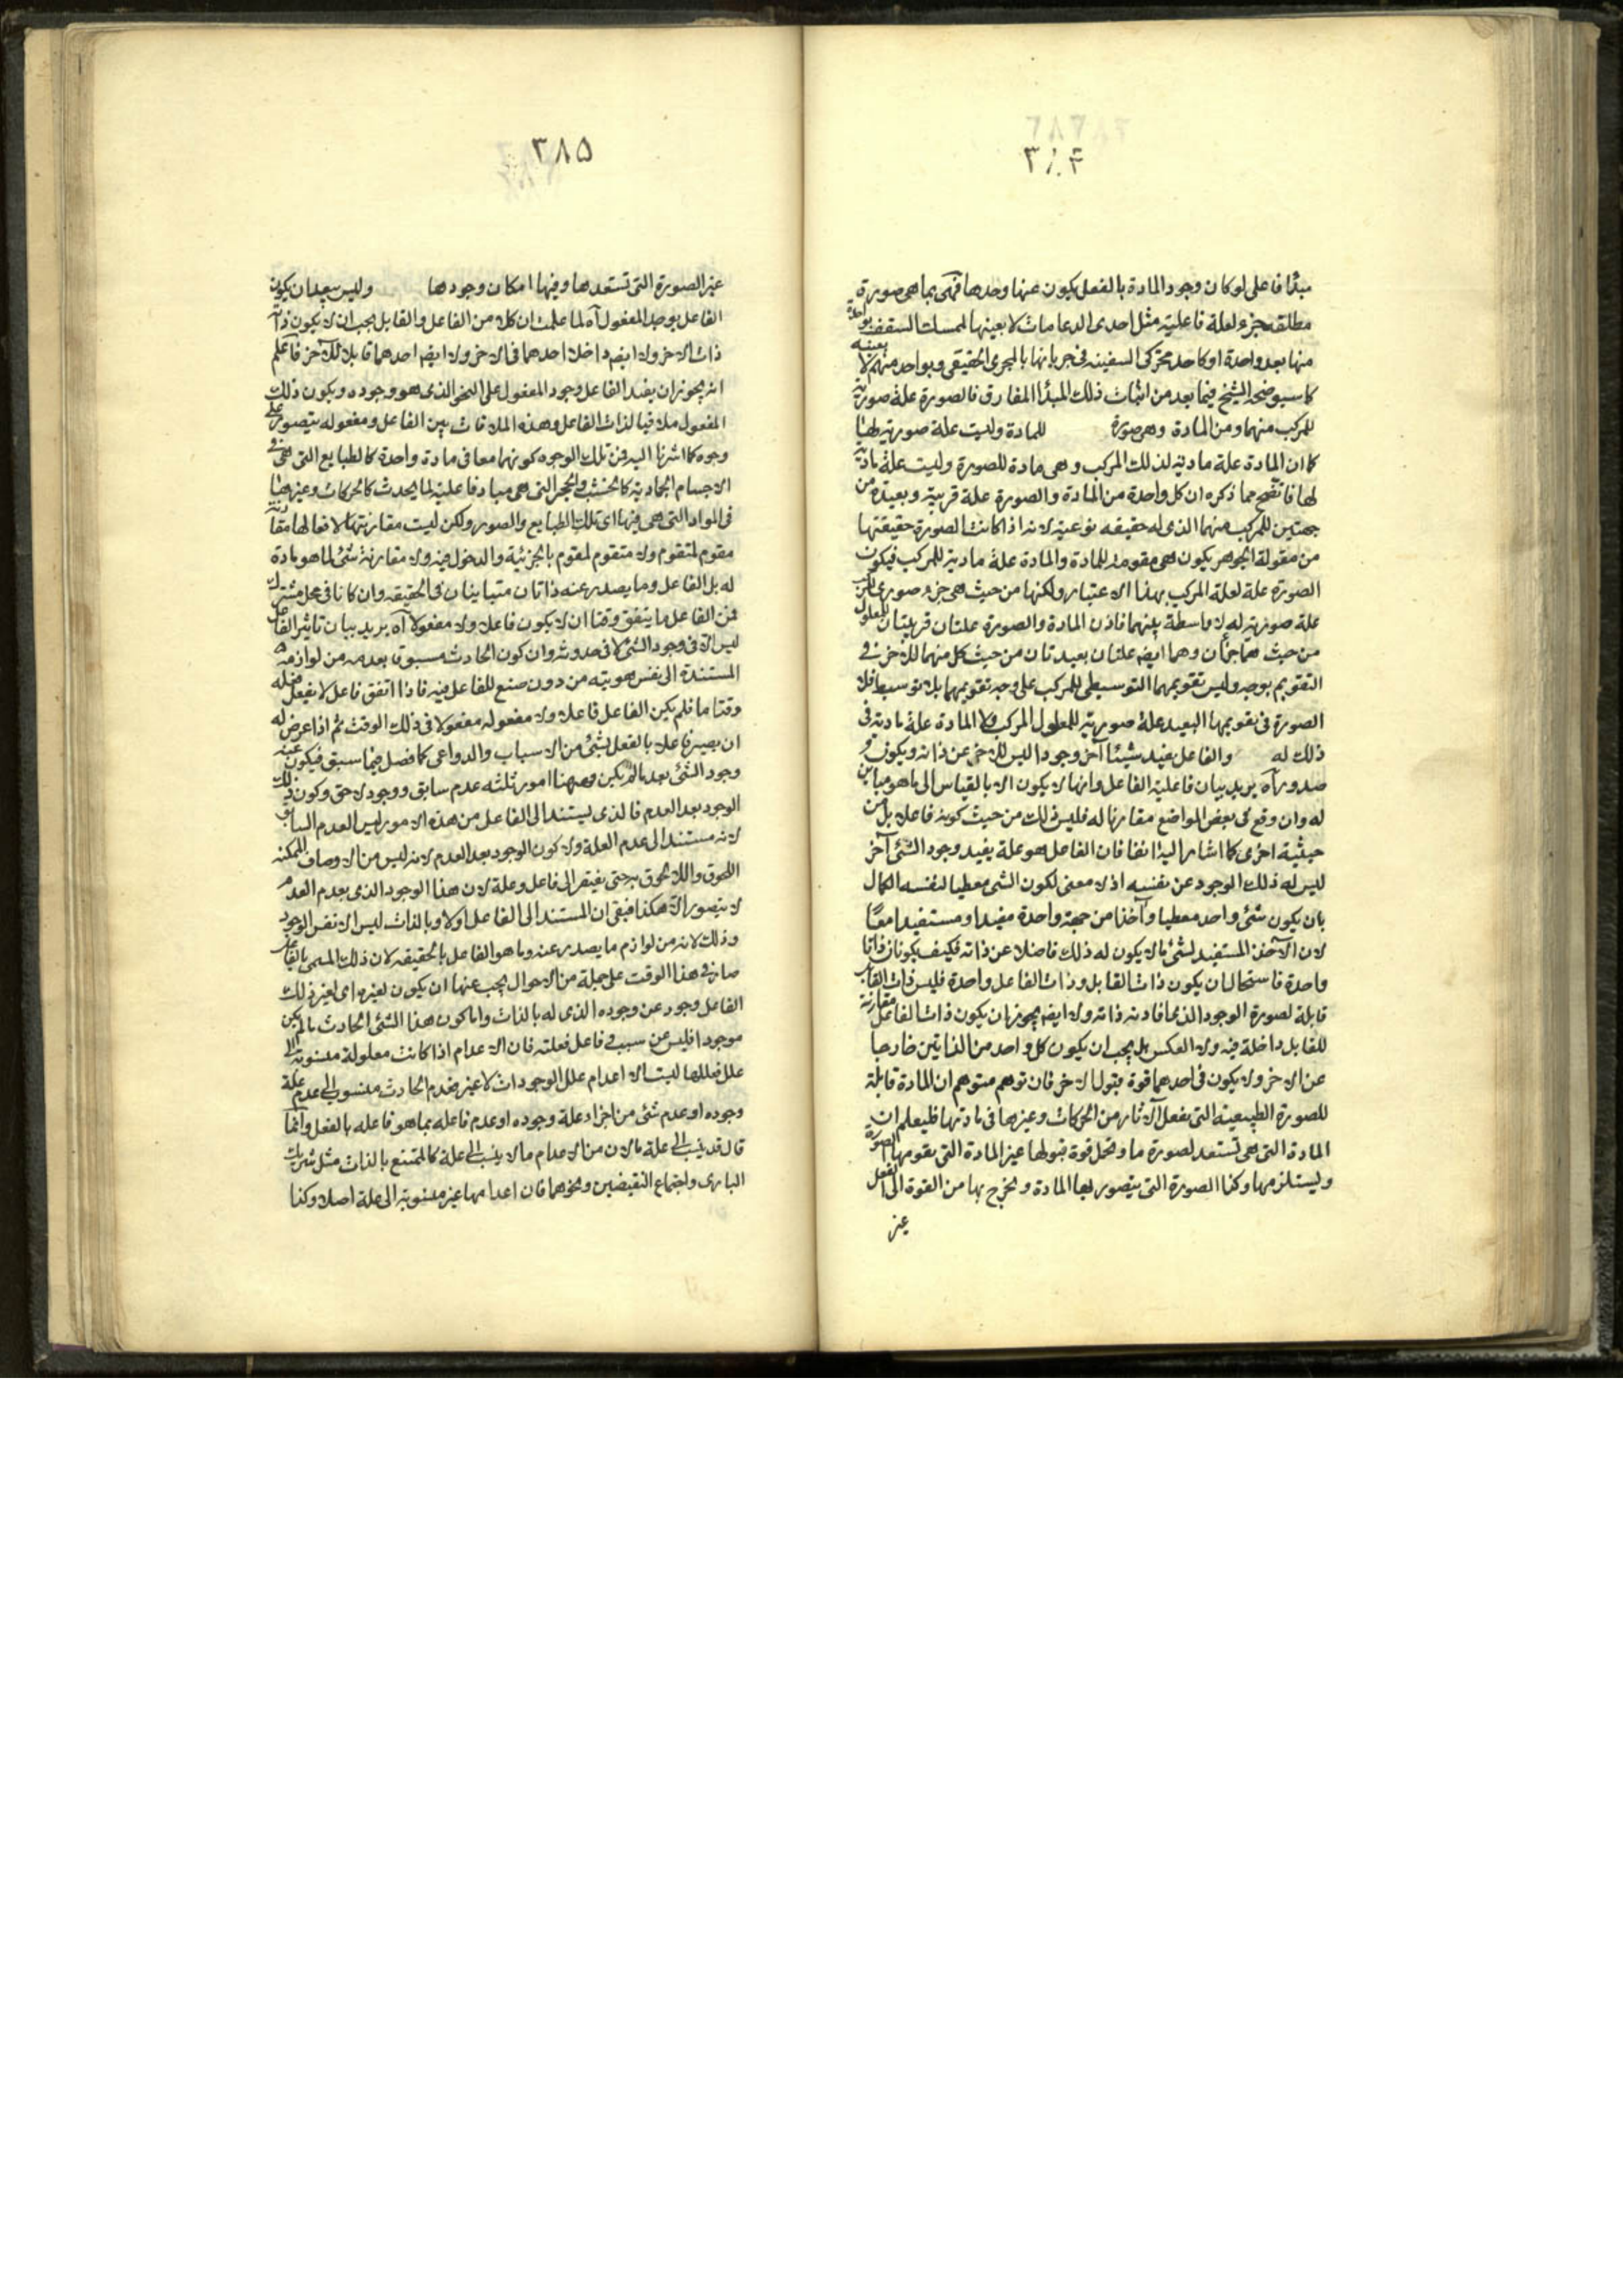 ٣٨۴
مبدأ فاعلى لو كان وجود المادة بالفعل يكون عنها وحدها فهى بما هى صورة
مطلقة جزء لعلة فاعلية مثل احدى الدعامات لا بعينها لممسك السقف بواحدة
منها بعد واحدة او كاحد محركى السفينه فى جريانها بالمجرى الحقيقى وبواحد منهم لا بعينه
كما سيوضحه الشيخ فيما بعد من اثبات ذلك المبدأ المفارق فالصورة علة صورية
للمركب منهما ومن المادة وهى صورة للمادة وليست علة صورية لها
كما ان المادة علة مادية لذلك المركب وهى مادة للصورة وليست علة مادية
لها فاتضح مما ذكره ان كل واحدة من المادة والصورة علة قريبة وبعيدة من
جهتين للمركب منهما الذى له حقيقه نوعية لانه اذا كانت الصورة حقيقتها
من مقولة الجوهر يكون هى مقومة للمادة والمادة علة مادية للمركب فيكون
الصورة علة لعلة المركب بهذا الاعتبار ولكنها من حيث هى جزء صورى للمركب
علة صورية له لا واسطة بينهما فاذن المادة والصورة علتان قريبتان للمعلول
من حيث هما جزآن وهما ايضا علتان بعيدتان من حيث كل منهما للآخر فى
التقويم بوجه وليس تقويمهما التوسطى للمركب على وجه تقويمهما بلا توسيط فلا
الصورة فى تقويمها البعيد علة صورية للمعلول المركب ولا المادة علة مادية فى
ذلك له والفاعل يفيد شيئا آخر وجودا ليس للآخر عن ذاته ويكون
صدوره آه يريد بيان فاعلية الفاعل وانها لا يكون الا بالقياس الى ما هو مباين
له وان وقع فى بعض المواضع مقارنا له فليس ذلك من حيث كونه فاعلا بل من
حيثية اخرى كما اشار اليه انفا فان الفاعل هو علة يفيد وجود الشئ آخر
ليس له ذلك الوجود عن نفسه اذ لا معنى لكون الشئ معطيا لنفسه الكمال
بان يكون شئ واحد معطيا وآخذا من جهة واحدة مفيدا ومستفيدا معًا
لان الآخذ المستفيد لشئ ما لا يكون له ذلك فاضلا عن ذاته فكيف يكونان ذاتا
واحدة فاستحال ان يكون ذات القابل وذات الفاعل واحدة فليس ذات القابل
قابلة لصورة الوجود الذى افادته ذاته ولا ايضا يجوز ان يكون ذات الفاعل مقارنة
للقابل داخلة فيه ولا العكس بل يجب ان يكون كل واحد من الذاتين خارجا
عن الاخر ولا يكون فى احدهما قوة قبول الاخر فان توهم متوهم ان المادة قابلة
للصورة الطبيعية التى يفعل الآثار من الحركات وغيرها فى مادتها فليعلم ان
المادة التى هى تستعد لصورة ما وتحل قوة قبولها غير المادة التى يقومها الصورة
ويستلزمها وكذا الصورة التى يتصور بها المادة ويخرج بها من القوة الى الفعل
غير
٣٨۵
غير الصورة التى تستعدها وفيها امكان وجودها وليس ببعيد ان يكون
الفاعل يوجد المفعول آه لما علمت ان كلا من الفاعل والقابل يجب ان لا يكون ذات
ذات الاخر ولا ايضا داخلا احدهما فى الاخر ولا ايضا احدهما قابلا للآخر فاعلم
انه يجوز ان يفيد الفاعل وجود المفعول على النحو الذى هو وجوده ويكون ذلك
المفعول ملاقيا لذات الفاعل وهذه الملاقات بين الفاعل ومفعوله يتصور على
وجوه كما اشرنا اليه فمن تلك الوجوه كونهما معا فى مادة واحدة كالطبايع التى هى فى
الاجسام الجمادية كالخشب والحجر التى هى مباد فاعلية لما يحدث كالحركات وغيرها
فى المواد التى هى فيها اى تلك الطبايع والصور ولكن ليست مقارنتها لافعالها مقارنة
مقوم لمتقوم ولا متقوم لمقوم بالجزئية والدخول فيه ولا مقارنة شئ لما هو مادة
له بل الفاعل وما يصدر عنه ذاتان متباينان فى الحقيقه وان كانا فى محل مشترك
فمن الفاعل ما يتفق وقتا ان لا يكون فاعلا ولا مفعولا آه يريد بيان تاثير الفاعل
ليس الا فى وجود الشئ لا فى حدوثه وان كون الحادث مسبوقا بعدمه من لوازمه
المستندة الى نفس هويته من دون صنع للفاعل فيه فاذا اتفق فاعل لا يفعل فعله
وقتا ما فلم يكن الفاعل فاعلا ولا مفعوله مفعولا فى ذلك الوقت ثم اذا عرض له
ان يصير فاعلا بالفعل بشئ من الاسباب والدواعى كما فصل فيما سبق فيكون عنه
وجود الشئ بعد ما لم يكن فههنا امور ثلثه عدم سابق ووجود لاحق وكون ذلك
الوجود بعد العدم فالذى يستند الى الفاعل من هذه الامور ليس العدم السابق
لانه مستند الى عدم العلة ولا كون الوجود بعد العدم لانه ليس من الاوصاف الممكنه
اللحوق واللالحوق به حتى يفتقر الى فاعل وعلة لان هذا الوجود الذى بعد العدم
لا يتصور الا هكذا فبقى ان المستند الى الفاعل اولا وبالذات ليس الا نفس الوجود
وذلك لانه من لوازم ما يصدر عنه وما هو الفاعل بالحقيقه لان ذلك المسمى بالفاعل
صار فى هذا الوقت على جملة من الاحوال يجب عنها ان يكون لغيره اى لغير ذلك
الفاعل وجود عن وجوده الذى له بالذات واما كون هذا الشئ الحادث ما لم يكن
موجودا فليس عن سبب فى فاعل فعلته فان الاعدام اذا كانت معلولة منسوبة الى
علل فعللها ليست الا اعدام علل الوجودات لا غير فعدم الحادث منسوب الى عدم علة
وجوده او عدم شئ من اجزاء علة وجوده او عدم فاعله بما هو فاعله بالفعل وانما
قال قد ينسب الى علة ما لان من الاعدام ما لا ينسب الى علة كالممتنع بالذات مثل شريك
البارى واجتماع النقيضين ونحوهما فان اعدامها غير منسوبة الى علة اصلا وكذا